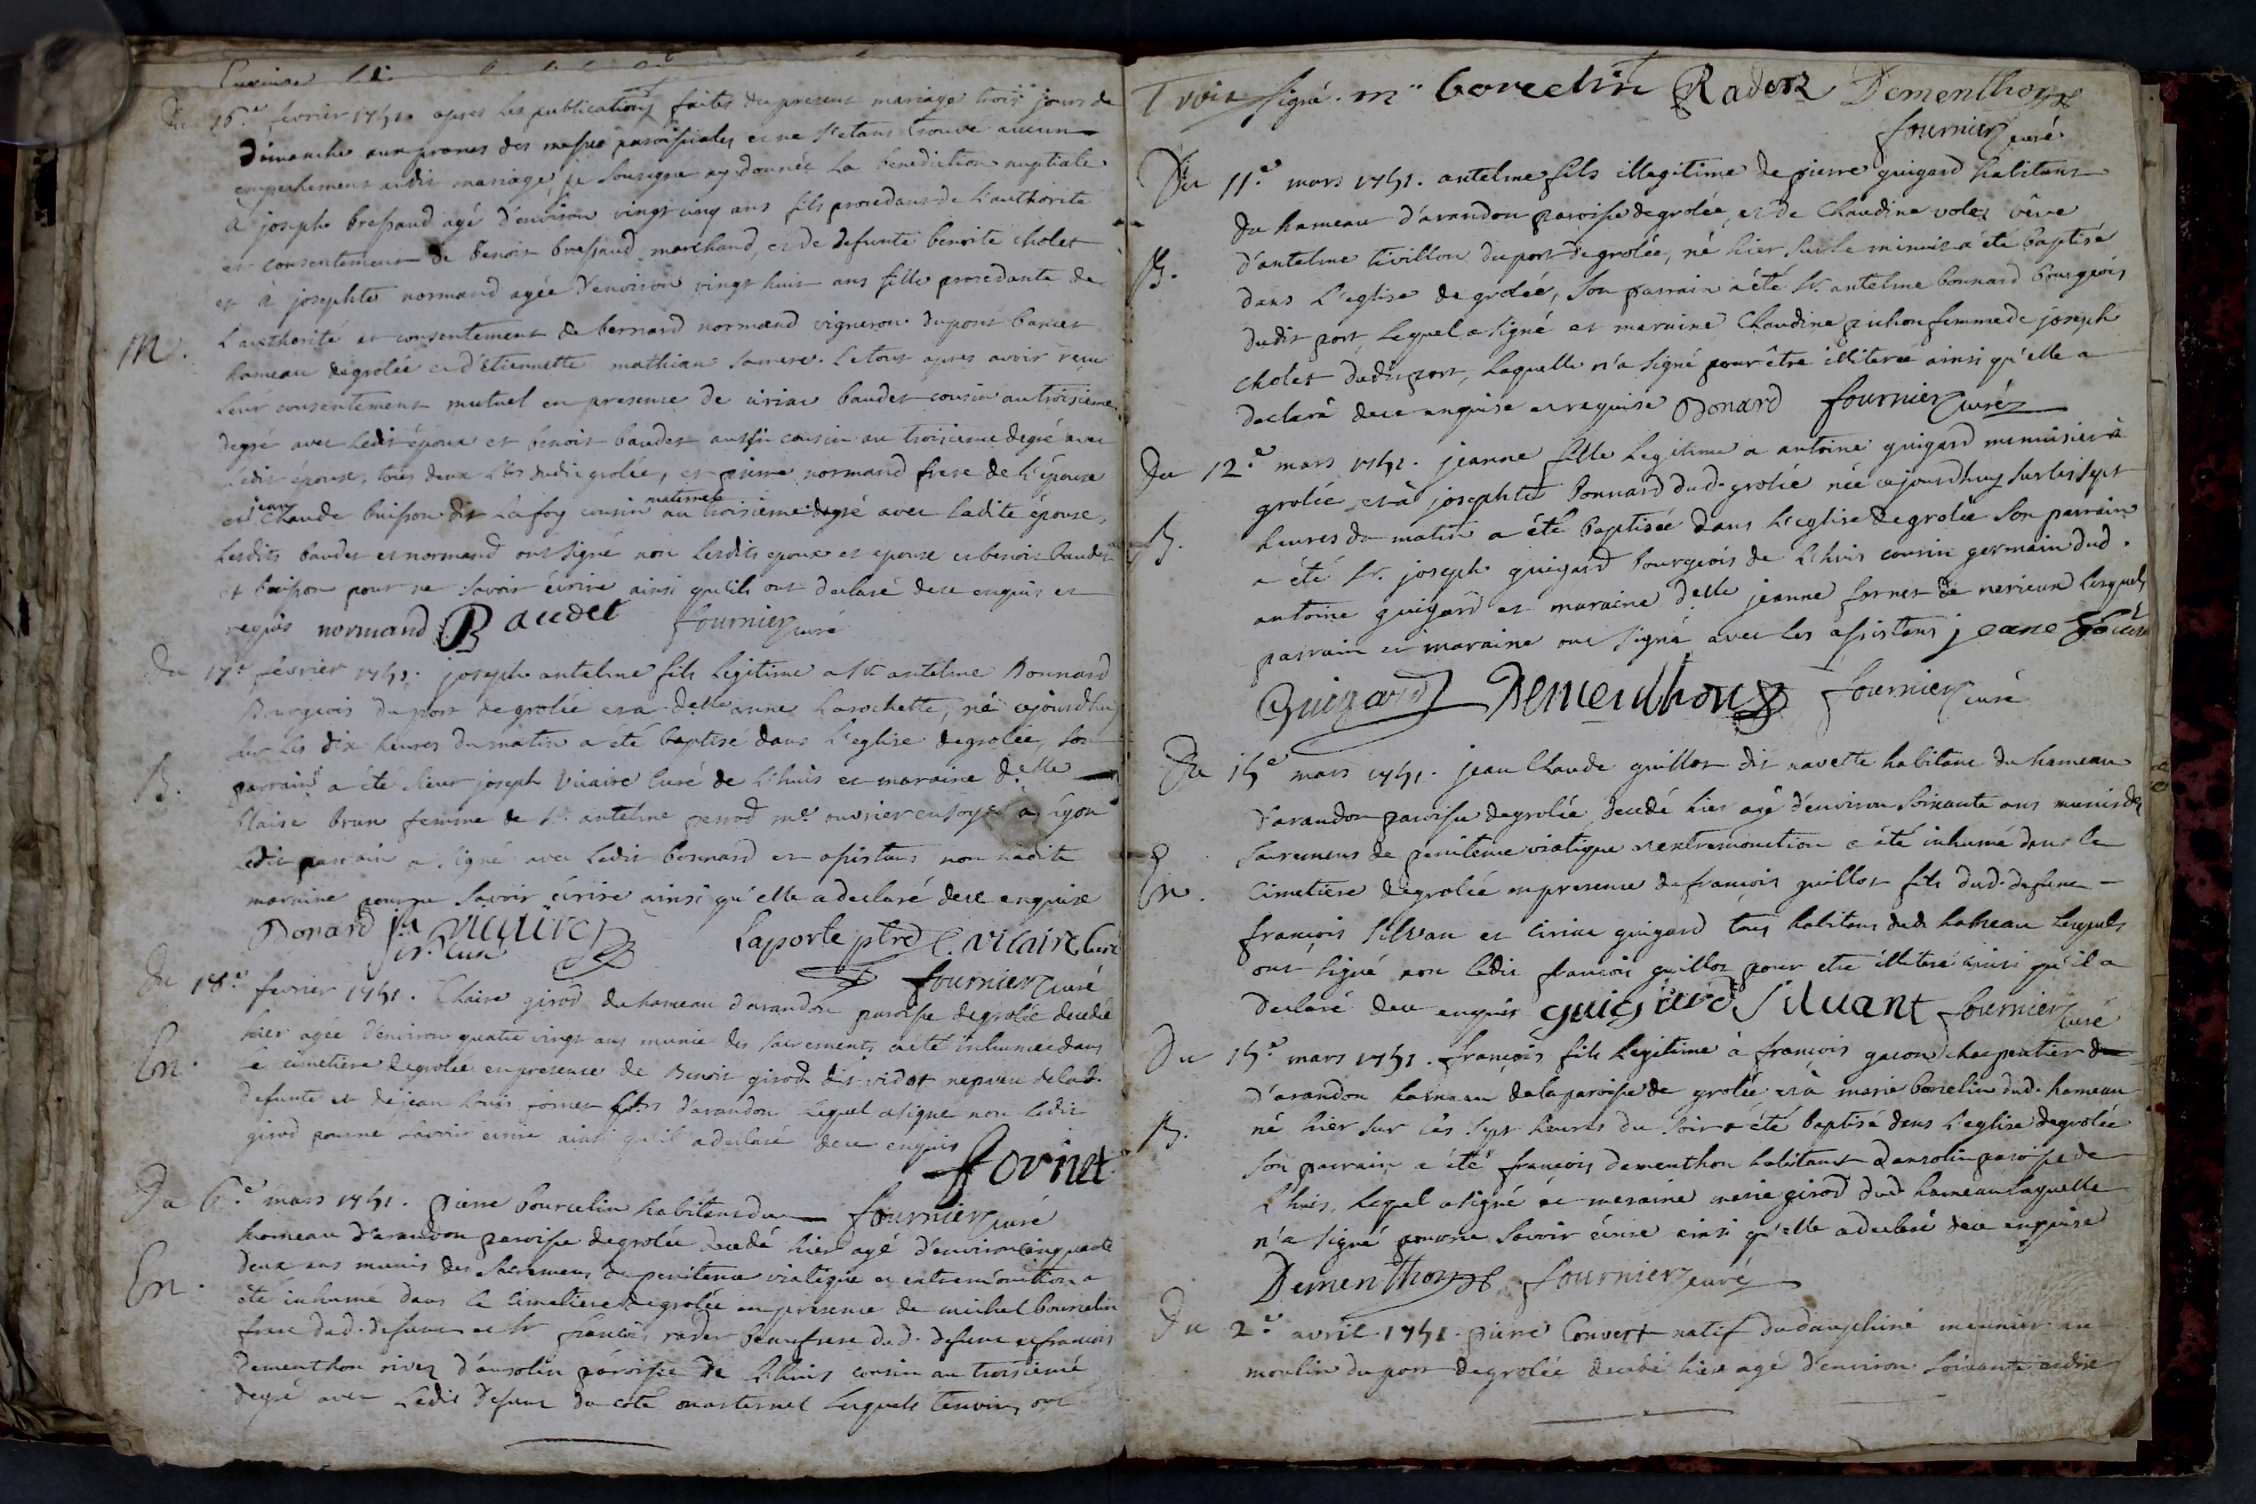 du 16.e fevrier 1751. apres les publications faites du present mariage trois jours de
dimanche aux prones des messes paroissiales et ne s'etant trouvé aucun
empechement audit mariage, je sousigné ay donnée la benediction nuptiale
a joseph bressand agé d'environ vingt cinq ans fils procedant de l'authorite
et consentement de benoit bressand marchand, et de defunte benoite cholet
et à josephte normand agée d'environ vingt huit ans fille procedante de
L'authorité et consentement de bernard normand vigneron du port
hameau de grolée et d'étiennette mathian sa mere. Le tout apres avoir reçu
leur consentement mutuel en presence de ciriac baudet cousin au troisieme
degré avec ledit époux et benoit baudet aussi cousin au troisieme degré avec
ledit époux, tous deux dudit grolée, et pierre normand frere de l'épouse
et jean Claude buisson dit Lafoy cousin maternel au troisieme degré avec ladite épouse,
Lesdits baudet et normand ont signé non lesdits epoux et epouse et benoit baudet
et buisson pour ne savoir écrire ainsi qu'ils ont declaré de ce enquis et
requis normand Baudet fournier curé
M.
du 17.e fevrier 1751. joseph antelme fils legitime a sr. antelme Bonnard
Bourgeois du port de grolée et a delle anne Larochette, né cejourd'huy
sur les dix heures du matin a eté baptisé dans l'eglise de grolée, son
B. parrain a été sieur joseph vicaire curé de L'huis et maraine d.elle
Claire brun femme de sr. antelme perrod me. ouvrier en soye a Lyon
Ledit parrain a signé avec ledit bonnard et assistans non ladite
maraine pour ne savoir écrire ainsi qu'elle a declaré de ce enquise
Bonard Laporte ptre C. vicaire curé
fournier curé
du 18.e fevrier 1751. Claire girod du hameau d'arandon paroisse de grolée decedée
hier agée d'environ quatre vingt ans munie des sacrements a eté inhumée dans
En. le cimetiere de grolée en presence de Benoit girod dit vidot nepveu de lad.
defunte et de jean Louis fornet d'arandon lequel a signé non ledit
girod pour ne savoir ecrire ainsi qu'il a declaré de ce enquis
fornet
du 6.e mars 1751. pierre bourcelin habitant du fournier curé
hameau d'arandon paroisse de grolée decedé hier agé d'environ cinquante
En. deux ans munis des sacremens de penitence viatique et extremonction a
été inhumé dans le cimetiere de grolée en presence de michel bourcelin
frere dud. defunt et sr françois rader beaufrere dud. defunt et françois
dementhon d'ansolin paroisse de L'huis cousin au troisiemé
degré avec ledit defunt du coté maternel lesquels temoins ont
Trois signé. m bovrelin Rader Dementhon
fournier curé
Du 11.e mars 1751. antelme fils illegitime de pierre guigard habitant
du hameau d'arandon paroisse de grolée, et de Claudine volet vêve
B. d'antelme tivillon du port de grolée, né hier sur le minuit a été baptisé
dans L'eglise de grolée, son parrain a été sr. antelme bonnard bourgeois
dudit port, lequel a signé et maraine Claudine pichon femme de joseph
cholet dudit port, laquelle n'a signé pour être illiterée ainsi qu'elle a
declaré de ce enquise et requise Bonard fournier curé
Du 12.e mars 1751. jeanne fille legitime a antoine guigard menuisier à
grolée et à josephte bonnard dud. grolée née cejourdhuy sur les sept
B. heures du matin a été baptisée dans L'eglise de grolée son parrain
a été sr. joseph guigard bourgeois de L'huis cousin germain dud.
antoine guigard et maraine delle jeanne fornet de nerieux lesquels
parrain et maraine ont signé avec les assistans jeane
Guigard Dementhon fournier curé
Du 15.e mars 1751. jean Claude guillot dit navette habitant du hameau
d'arandon paroisse de grolée, decedé hier agé d'environ soixante ans munis des
sacremens de penitence viatique et extremonction a été inhumé dans le
En. Cimetiere de grolée en presence de françois guillot fils dud. defunt
françois silvan et ciriac guigard tous habitans dud. hameau lesquels
ont signé non ledit francois guillot pour etre illiteré ainsi qu'il a
declaré de ce enquis guigard Siluant fournier curé
Du 15.e mars 1751. françois fils legitime à francois gacon charpentier
d'arandon hameau de la paroisse de grolée et à marie borcelin dud. hameau
B. né hier sur les sept heures du soir a été baptisé dans L'eglise de grolée
son parrain a été françois dementhon habitant d'ansolin paroisse de
L'huis, lequel a signé et maraine marie girod dud. hameau laquelle
n'a signé pour ne savoir écrire ainsi qu'elle a declaré de ce enquise
Dementhon fournier curé
Du 2.e avril 1751. pierre Convert natif du dauphiné meunier au
moulin du port de grolée decedé hier agé d'environ soixante